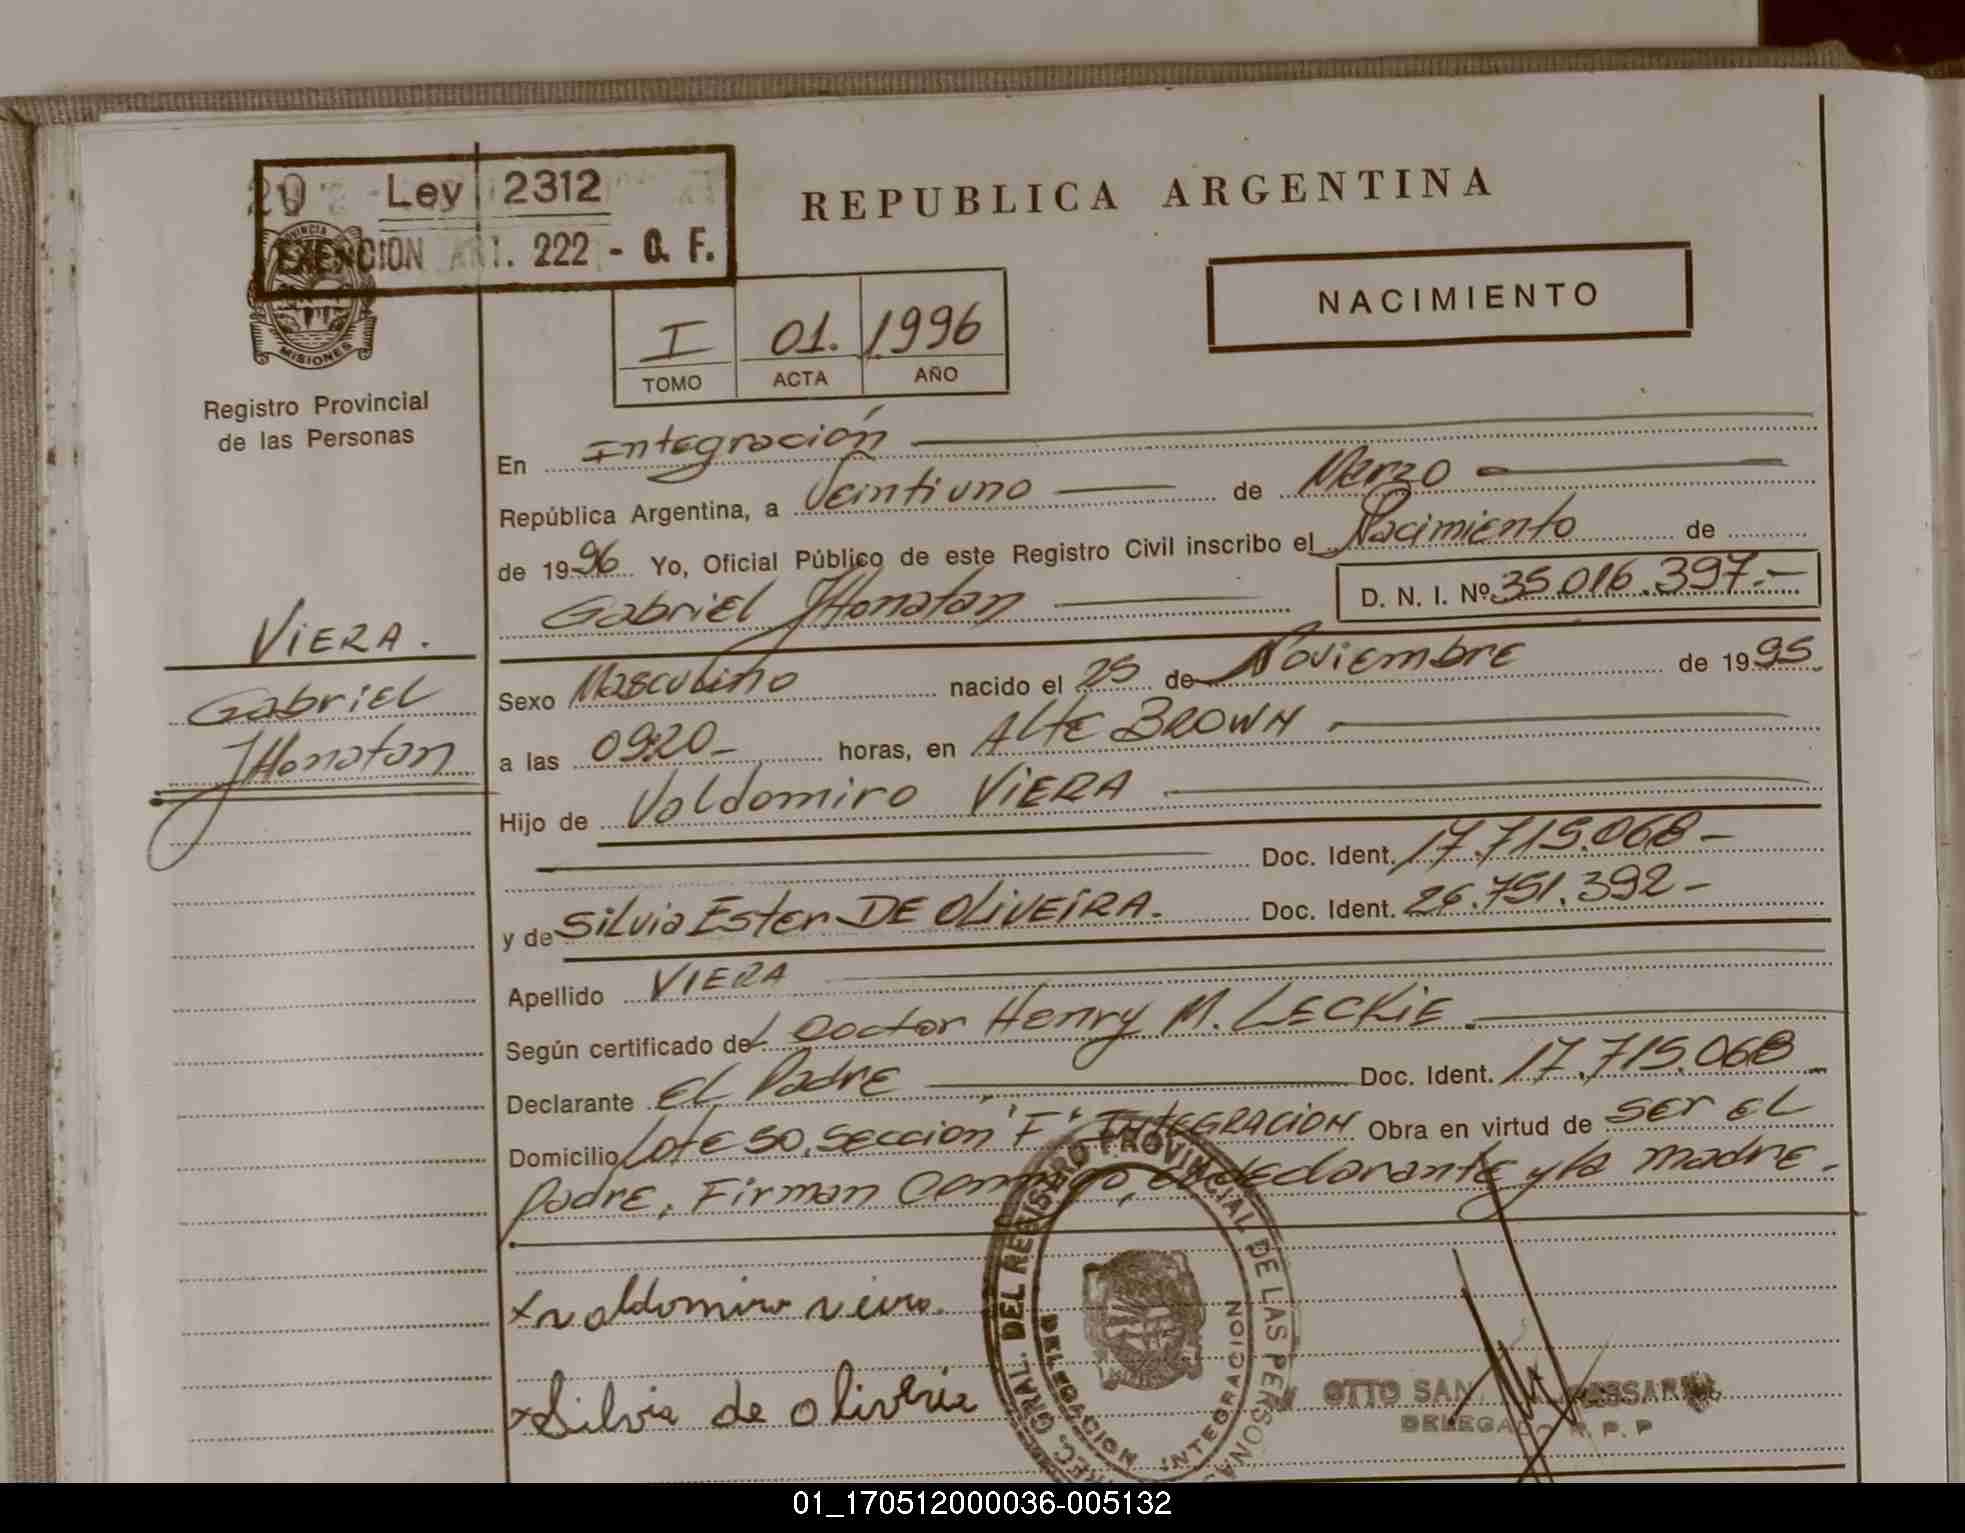 Ley 2312
EXENCION ART. 222 - O. F.
REPUBLICA ARGENTINA
NACIMIENTO
PROVINCIA
MISIONES
Registro Provincial
de las Personas
I 01. 1996
TOMO ACTA AÑO
En Integración
República Argentina, a Veintiuno de Marzo
de 1996 Yo, Oficial Público de este Registro Civil inscribo el Nacimiento de
Gabriel JHonatan D. N. I. Nº 35.016.397.-
VIERA.
Gabriel
JHonatan
Sexo Masculino nacido el 25 de Noviembre de 1995
a las 0920- horas, en Alte BROWN
Hijo de Valdomiro VIERA
Doc. Ident. 17.715.068-
y de Silvia Ester DE OLIVEIRA. Doc. Ident. 26.751.392-
Apellido VIERA
Según certificado del Doctor Henry M. LECKIE.
Declarante El Padre Doc. Ident. 17.715.068
Domicilio Lote 50, Sección "F" INTEGRACION Obra en virtud de ser el
Padre. Firman Conmigo, el declarante y la madre.
x valdomiro vieira.
x Silvia de oliveria
GRAL. DEL REGISTRO PROVINCIAL DE LAS PERSONAS
DELEGACION INTEGRACION
OTTO
DELEGADO R. P. P
01_170512000036-005132